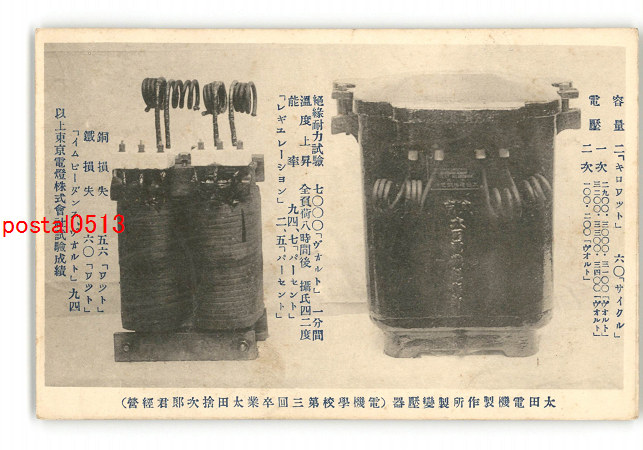 容量 二「キロワット」 六〇「サイクル」
電壓 一次 二九〇〇・三〇〇〇・三一〇〇「ヴオルト」
三二〇〇・三三〇〇・三四〇〇「ヴオルト」
二次 一〇〇・二〇〇「ヴオルト」
絕緣耐力試驗 七〇〇〇「ヴオルト」 一分間
溫度上昇 全負荷八時間後 攝氏四二度
能率 九四、七「パーセント」
「レギユレーシヨン」 二、五「パーセント」
銅損失 五六「ワツト」
鐵損失 六〇「ワツト」
「イムピーダンスヴオルト」 九四
以上東京電燈株式會社試驗成績
太田電機製作所製變壓器(電機學校第三回卒業太田捨次郎君經營)
postal0513